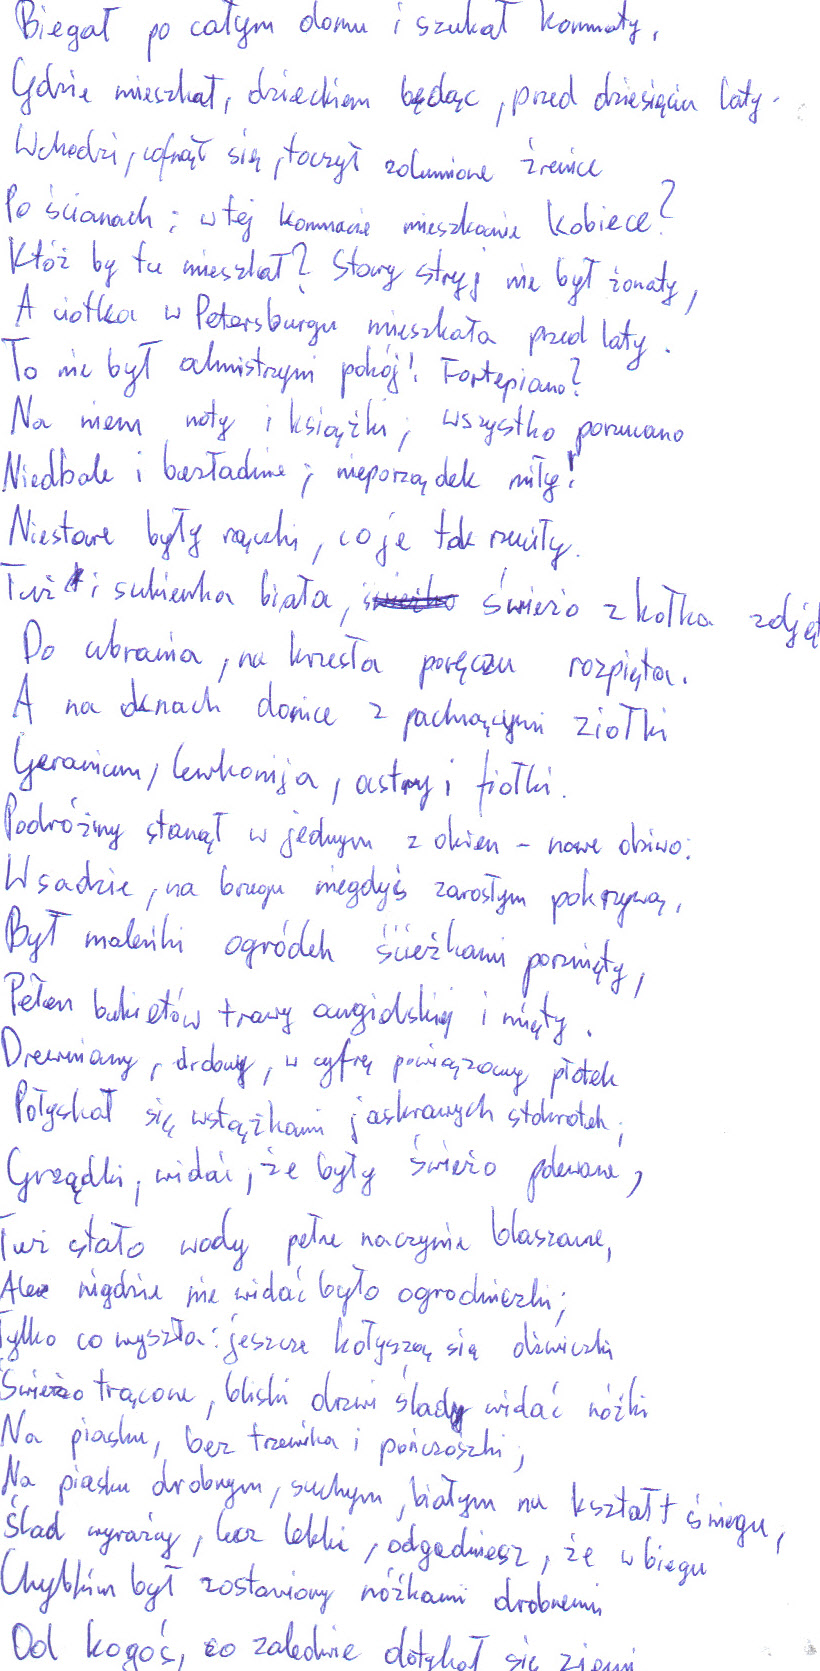 Biegał po całym domu i szukał komnaty,
Gdzie mieszkał, dzieckiem będąc, przed dziesięciu laty.
Wchodzi, cofnął się, toczył zdumione źrenice
Po ścianach: w tej komnacie mieszkanie kobiece?
Któż by tu mieszkał? Stary stryj nie był żonaty,
A ciotka w Petersburgu mieszkała przed laty.
To nie był ochmistrzyni pokój! Fortepiano?
Na niem noty i książki; wszystko porzucano
Niedbale i bezładnie; nieporządek miły!
Niestare były rączki, co je tak rzuciły.
Tuż i sukienka biała, świeżo z kołka zdjęt
Do ubrania, na krzesła poręczu rozpięta.
A na oknach donice z pachnącymi ziołki
Geranium, lewkonija, astry i fiołki.
Podróżny stanął w jednym z okien - nowe dziwo:
W sadzie, na brzegu niegdyś zarosłym pokrzywą,
Był maleńki ogródek ścieżkami porznięty,
Pełen bukietów trawy angielskiej i mięty.
Drewniany, drobny, w cyfrę powiązany płotek
Połyskał się wstążkami jaskrawych stokrotek;
Grządki, widać, że były świeżo polewane,
Tuż stało wody pełne naczynie blaszane,
Ale nigdzie nie widać było ogrodniczki;
Tylko co wyszła: jeszcze kołyszą się drzwiczki
Świeżo trącone, bliski drzwi ślady widać nóżki
Na piasku, bez trzewika i pończoszki;
Na piasku drobnym, suchym, białym na kształt śniegu,
Ślad wyraźny, lecz lekki, odgadniesz, że w biegu
Chybkim był zostawiony nóżkami drobnemi
Od kogoś, co zaledwie dotykał się ziemi